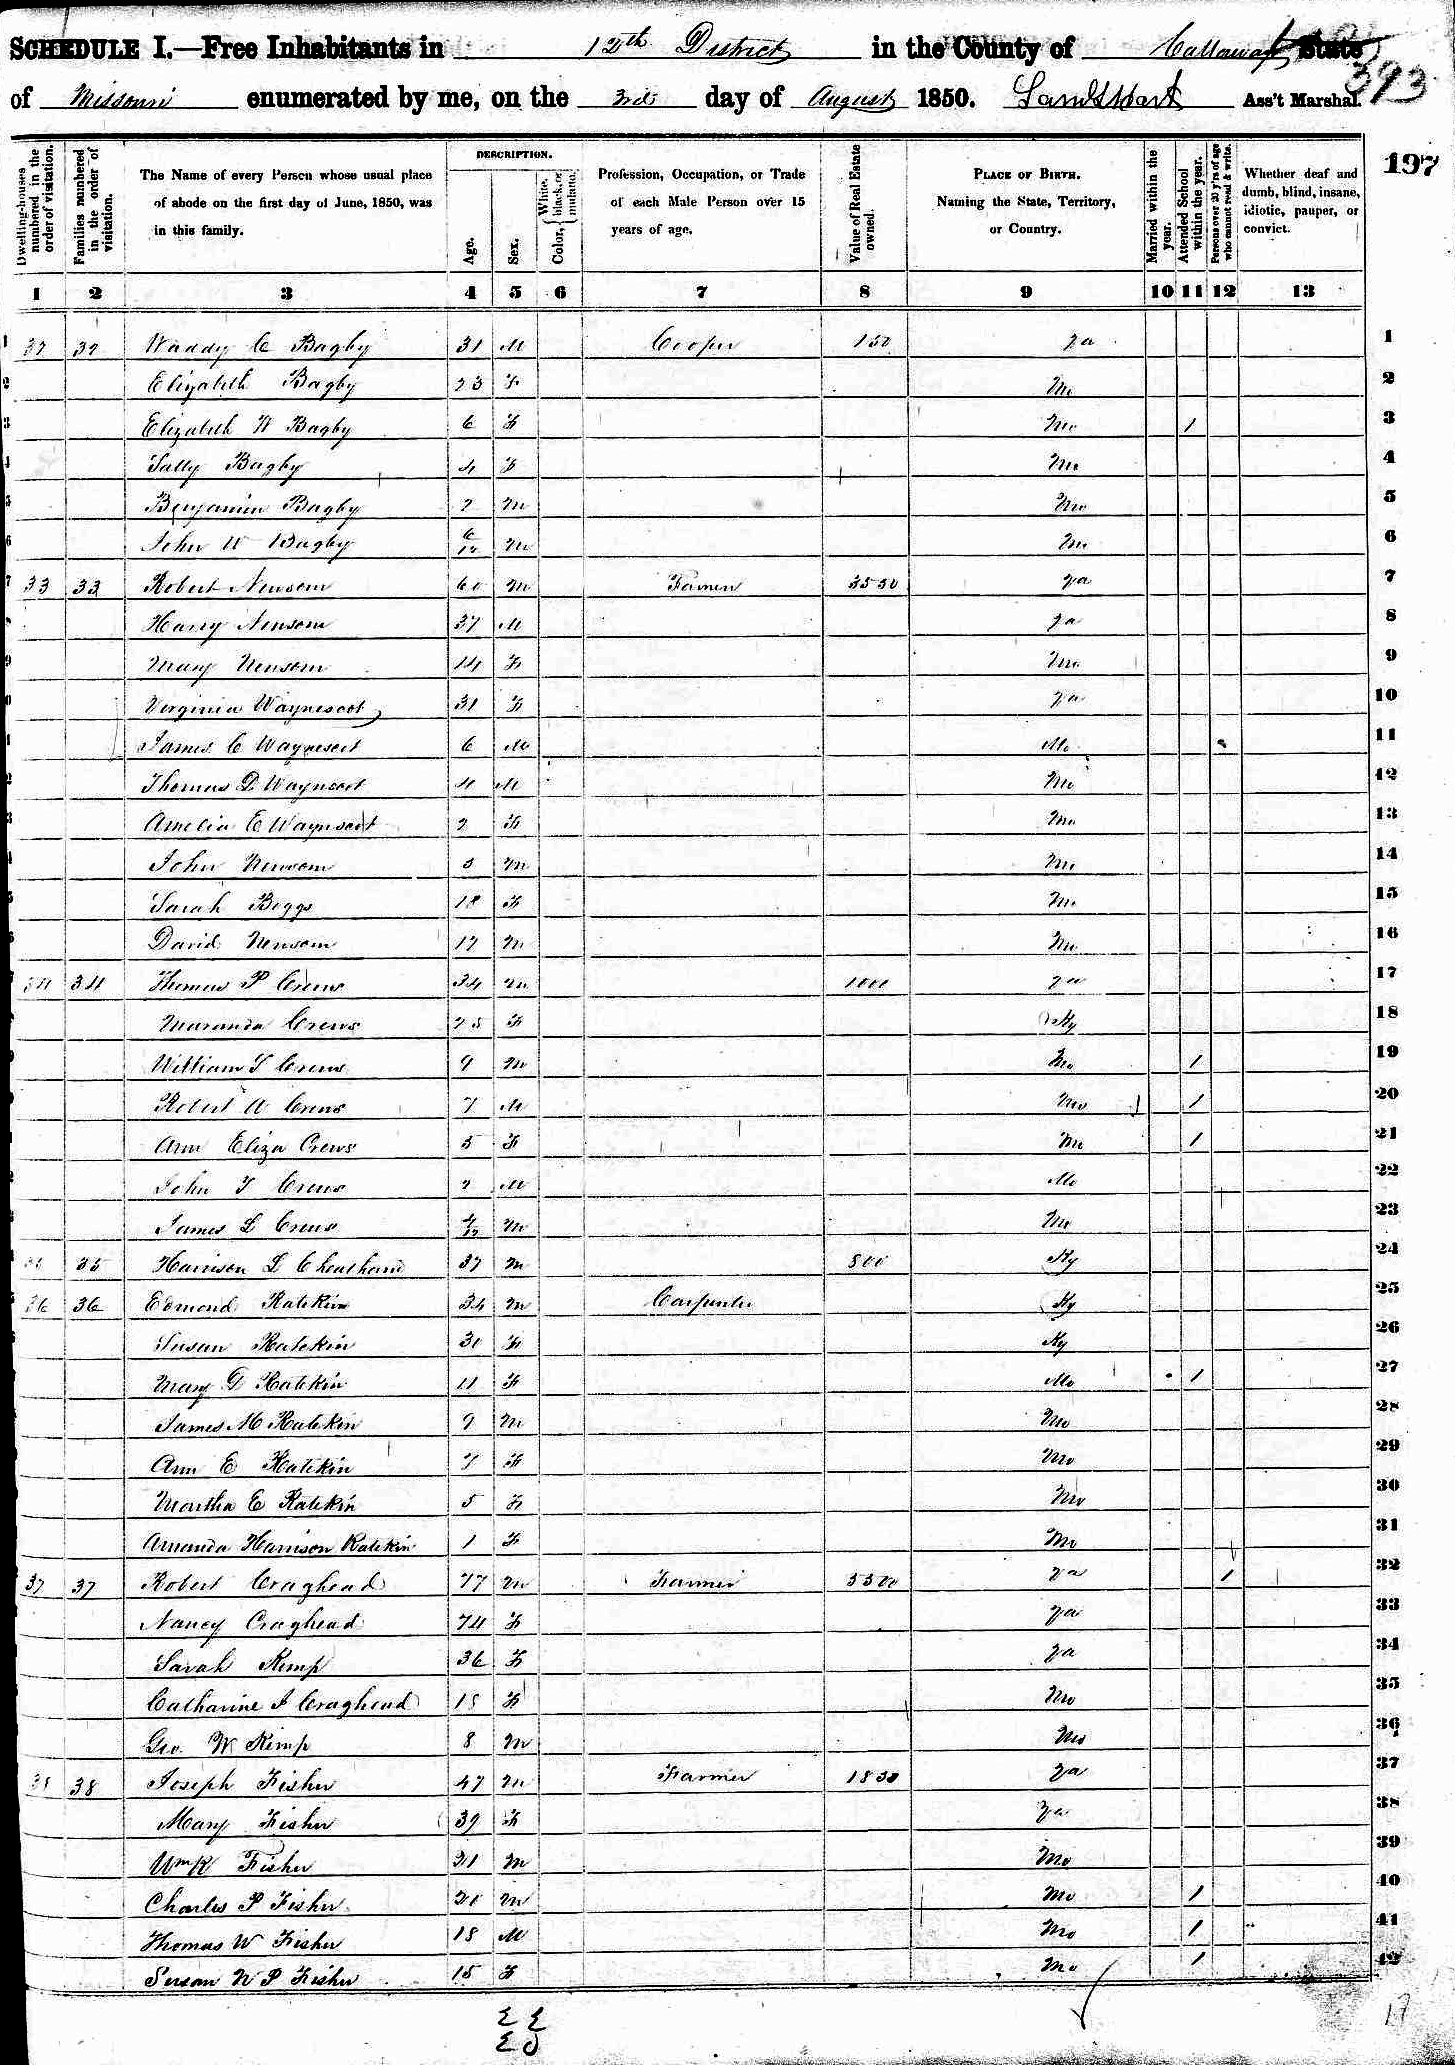 SCHEDULE I.—Free Inhabitants in 12th District in the County of Callaway State
393
of Missouri enumerated by me, on the 3rd day of August 1850. Ass't Marshal.
197
Dwelling-houses numbered in the order of visitation.
Families numbered in the order of visitation.
The Name of every Person whose usual place of abode on the first day of June, 1850, was in this family.
DESCRIPTION.
Age.
Sex.
Color, White, black, or mulatto.
Profession, Occupation, or Trade of each Male Person over 15 years of age.
Value of Real Estate owned.
PLACE OF BIRTH. Naming the State, Territory, or Country.
Married within the year.
Attended School within the year.
Persons over 20 y'rs of age who cannot read & write.
Whether deaf and dumb, blind, insane, idiotic, pauper, or convict.
1 2 3 4 5 6 7 8 9 10 11 12 13
Waddy C Bagby 31 M Cooper 150 Va 1
Elizabeth Bagby 23 F Mo 2
Elizabeth W Bagby 6 F Mo 1 3
Sally Bagby 4 F Mo 4
Benjamin Bagby 2 M Mo 5
John W Bagby 6/12 M Mo 6
33 33 Robert Newsom 60 M Farmer 3550 Va 7
Harry Newsom 37 M Va 8
Mary Newsom 14 F Mo 9
Virginia Waynescot 31 F Va 10
James C Waynescot 6 M Mo 11
Thomas D Waynscot 4 M Mo 12
Amelia E Waynscot 2 F Mo 13
John Newsom M Mo 14
Sarah Boggs 18 F Mo 15
David Newsom 17 M Mo 16
34 34 Thomas P Crews 34 M 1000 Va 17
Maranda Crews F Ky 18
William T Crews 9 M Mo 1 19
Robert W Crews 7 M Mo 1 20
Ann Eliza Crews 5 F Mo 1 21
John T Crews 2 M Mo 22
James L Crews M Mo 23
35 Harrison L Cheatham 37 M 800 Ky 24
36 36 Edmond Ratekin 34 M Carpenter Ky 25
Susan Ratekin 30 F Ky 26
Mary D Ratekin 11 F Mo 1 27
James M Ratekin 9 M Mo 28
Ann E Ratekin 7 F Mo 29
Martha E Ratekin 5 F Mo 30
Amanda Harrison Ratekin 1 F Mo 31
37 37 Robert Craghead 77 M Farmer 5300 Va 1 32
Nancy Craghead 74 F Va 33
Sarah Kemp 36 F Va 34
Catharine J Craghead 18 F Mo 35
Geo. W Kemp 8 M Mo 36
38 38 Joseph Fisher 47 M Farmer 1830 Va 37
Mary Fisher 39 F Va 38
Wm K Fisher 21 M Mo 39
Charles P Fisher 20 M Mo 1 40
Thomas W Fisher 18 M Mo 1 41
Susan N P Fisher 15 F Mo 1 42
17